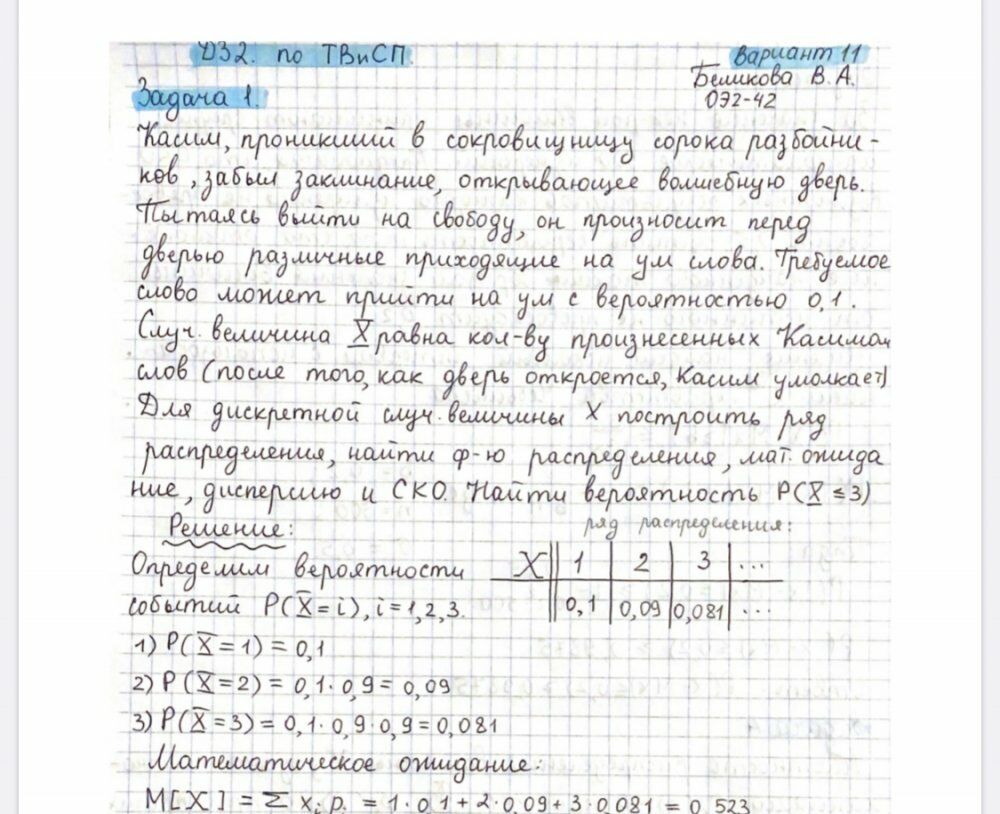 ДЗ2. по ТВиСП. Вариант 11
Беликова В.А.
Задача 1. ОЭ2-42
Касим, проникший в сокровищницу сорока разбойни-
ков, забыл заклинание, открывающее волшебную дверь.
Пытаясь выйти на свободу, он произносит перед
дверью различные приходящие на ум слова. Требуемое
слово может прийти на ум с вероятностью 0,1.
Случ. величина X равна кол-ву произнесенных Касимом
слов (после того, как дверь откроется, Касим умолкает)
Для дискретной случ. величины X построить ряд
распределения, найти ф-ю распределения, мат. ожида
ние, дисперсию и СКО. Найти вероятность P(X ≤ 3)
Решение: ряд распределения:
Определим вероятности
событий P(X = i), i = 1,2,3.
X 1 2 3 ...
0,1 0,09 0,081 ...
1) P(X = 1) = 0,1
2) P(X = 2) = 0,1 · 0,9 = 0,09
3) P(X = 3) = 0,1 · 0,9 · 0,9 = 0,081
Математическое ожидание:
M[X] = Σ xᵢ pᵢ = 1 · 0,1 + 2 · 0,09 + 3 · 0,081 = 0,523